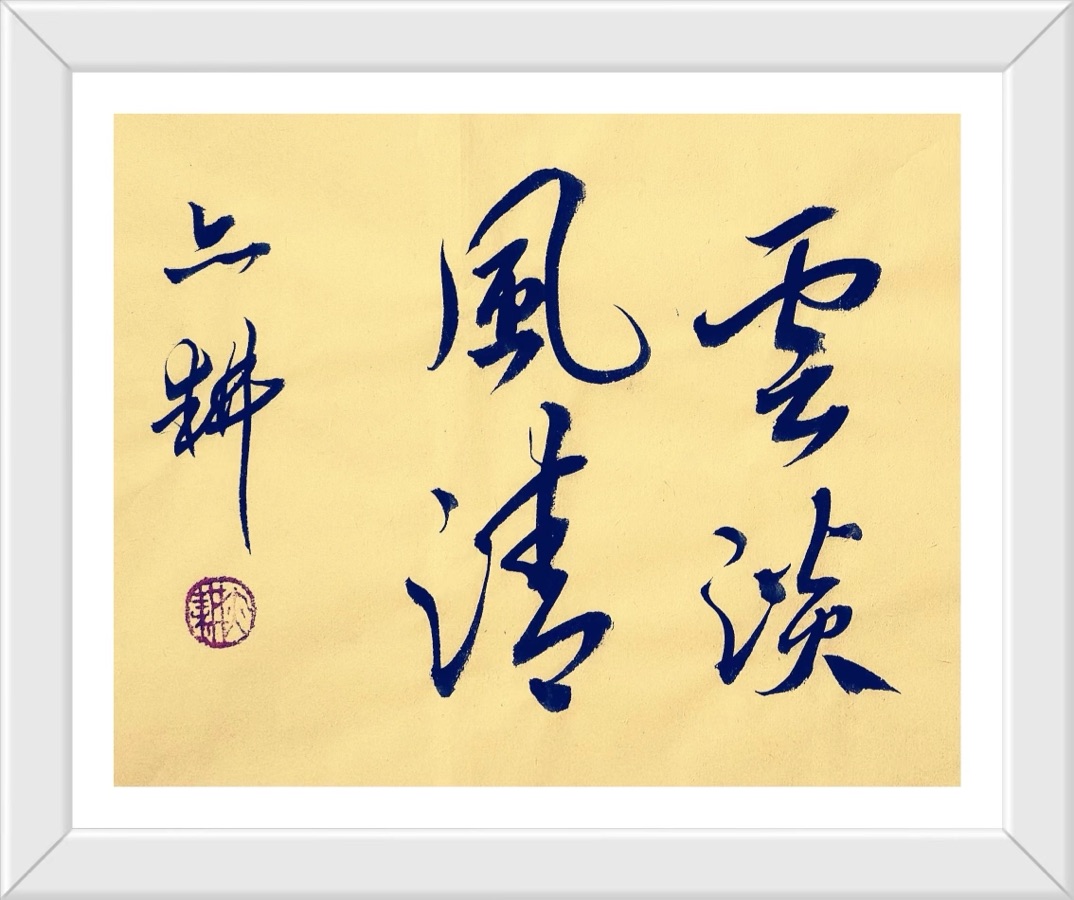 雲淡
風清
亦耕